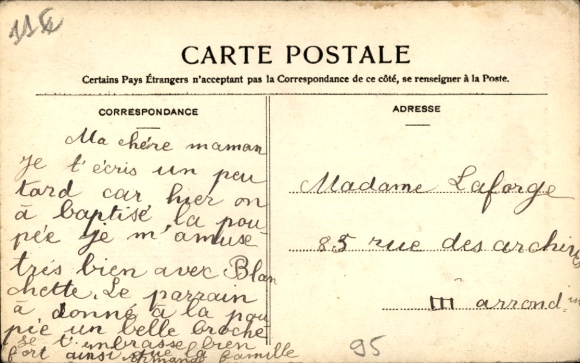 11 f
CARTE POSTALE
Certains Pays Étrangers n'acceptant pas la Correspondance de ce côté, se renseigner à la Poste.
CORRESPONDANCE
Ma chére maman
Je t'écris un peu
tard car hier on
à baptisé la pou
pée je m'amuse
trés bien avec Blan
chette. Le parrain
à donné à la pou
pée un belle broche
Je t'embrasse bien
fort ainsi que la famille
Armand
ADRESSE
Madame Laforge
85 rue des archives
III arrond
95